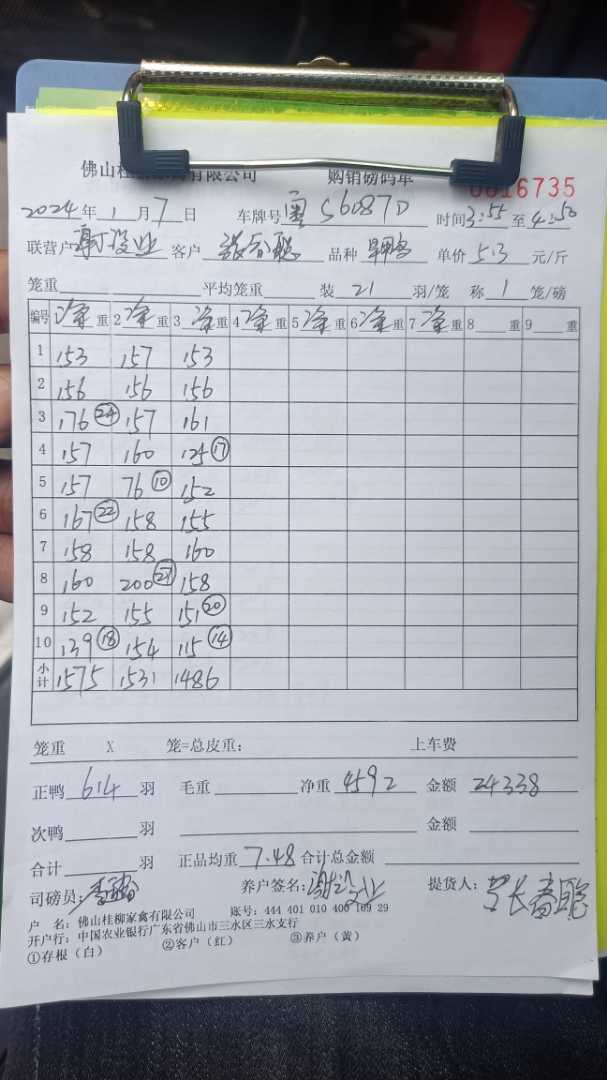 佛山桂柳家禽有限公司 购销磅码单
0016735
2024年1月7日 车牌号 粤S6087D 时间3:55至4:50
联营户 客户 品种 单价 5.3 元/斤
笼重 平均笼重 装 21 羽/笼 称 1 笼/磅
编号 净重 2净重 3净重 4净重 5净重 6净重 7净重 8 重 9 重
1 153 157 153
2 156 156 156
3 176㉔ 157 161
4 157 160 125⑰
5 157 76⑩ 152
6 167㉒ 158 155
7 158 158 160
8 160 200㉗ 158
9 152 155 151⑳
10 139⑱ 154 115⑭
小计 1575 1531 1486
笼重 X 笼=总皮重: 上车费
正鸭 614 羽 毛重 净重 4592 金额 24338
次鸭 羽 金额
合计 羽 正品均重 7.48 合计总金额
司磅员: 养户签名: 提货人:
户 名: 佛山桂柳家禽有限公司 账号: 444 401 010 400 109 29
开户行: 中国农业银行广东省佛山市三水区三水支行
①存根(白) ②客户(红) ③养户(黄)